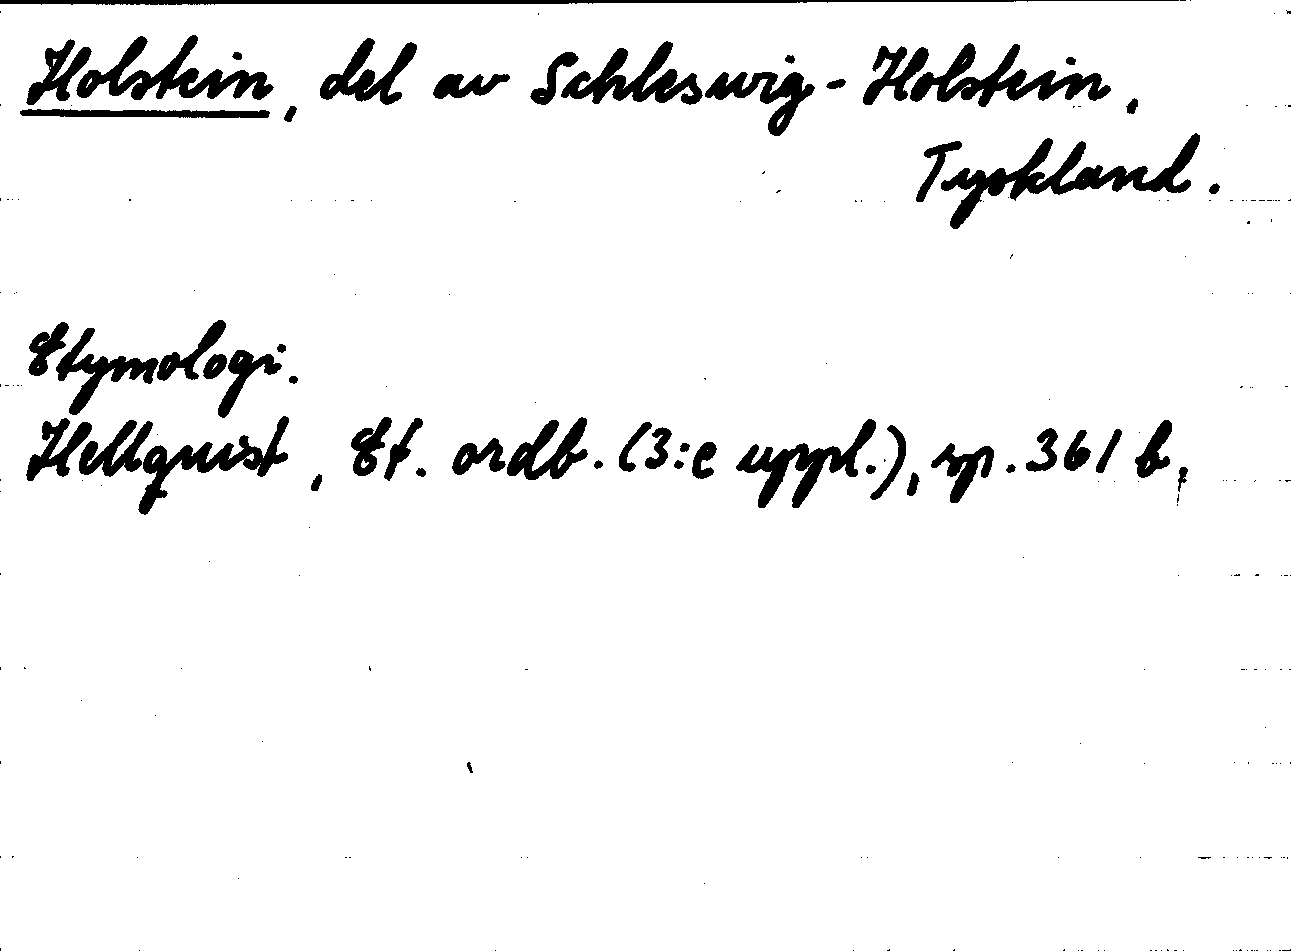 Holstein, del av Schleswig-Holstein,
Tyskland.
Etymologi.
Hellquist, Et. ordb. (3:e uppl.), sp. 361 b.